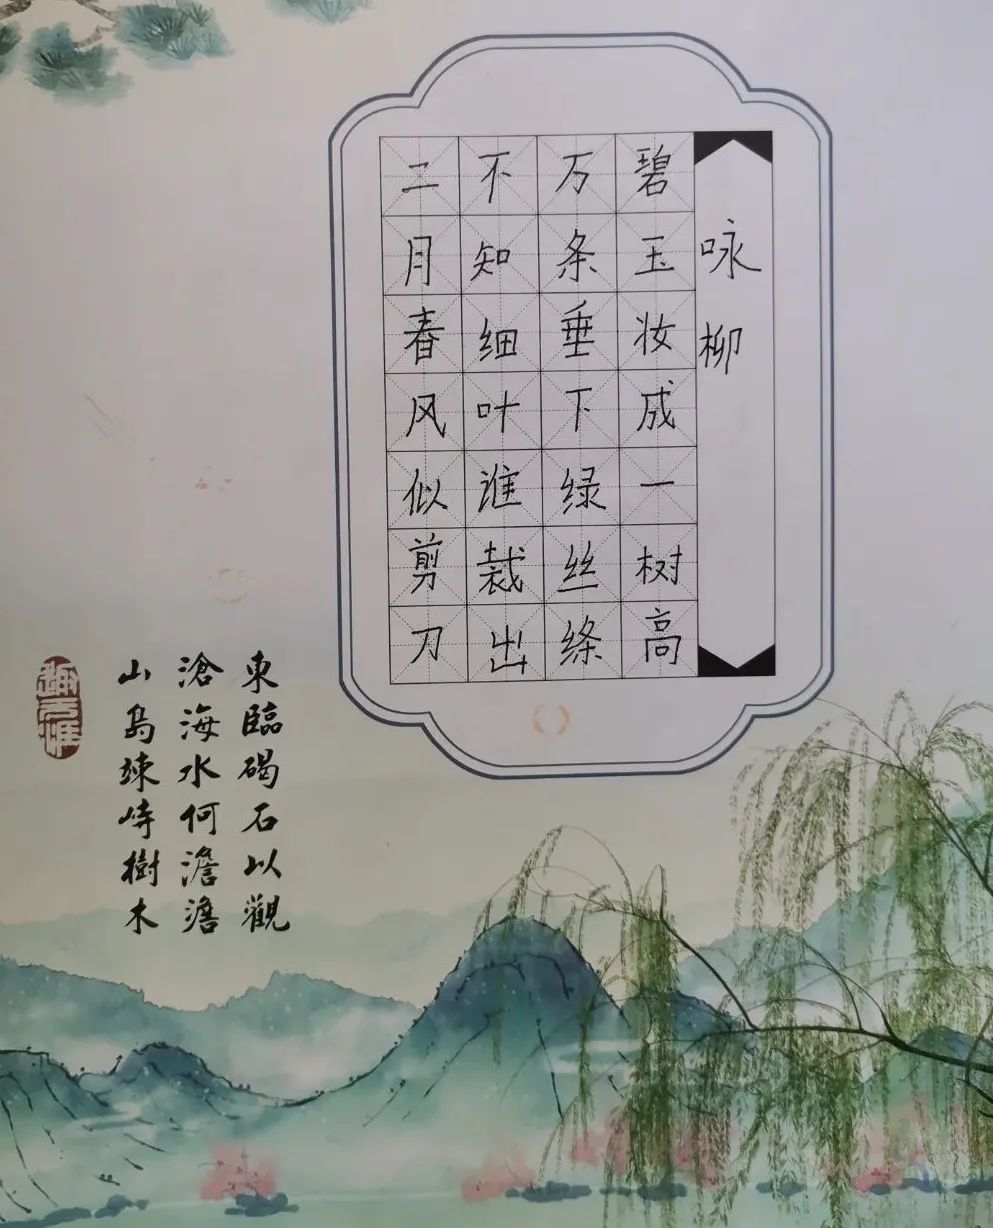 咏柳
碧玉妆成一树高
万条垂下绿丝绦
不知细叶谁裁出
二月春风似剪刀
東臨碣石以觀
滄海水何澹澹
山島竦峙樹木